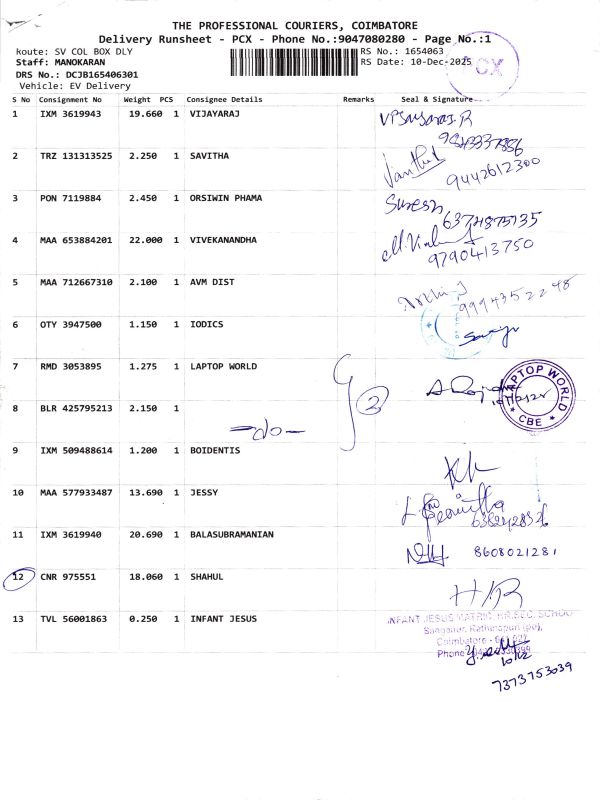 THE PROFESSIONAL COURIERS, COIMBATORE
Delivery Runsheet - PCX - Phone No.:9047080280 - Page No.:1
Route: SV COL BOX DLY RS No.: 1654063
Staff: MANOKARAN RS Date: 10-Dec-2025
DRS No.: DCJB165406301
Vehicle: EV Delivery
PCX
S No Consignment No Weight PCS Consignee Details Remarks Seal & Signature
1 IXM 3619943 19.660 1 VIJAYARAJ
2 TRZ 131313525 2.250 1 SAVITHA
9442612300
3 PON 7119884 2.450 1 ORSIWIN PHAMA Suresh
6374875135
4 MAA 653884201 22.000 1 VIVEKANANDHA
9790413750
5 MAA 712667310 2.100 1 AVM DIST
9994352248
6 OTY 3947500 1.150 1 IODICS
7 RMD 3053895 1.275 1 LAPTOP WORLD
LAPTOP WORLD
CBE
8 BLR 425795213 2.150 1
-do-
2
9 IXM 509488614 1.200 1 BOIDENTIS
10 MAA 577933487 13.690 1 JESSY
11 IXM 3619940 20.690 1 BALASUBRAMANIAN 8608021281
12 CNR 975551 18.060 1 SHAHUL
13 TVL 56001863 0.250 1 INFANT JESUS
INFANT JESUS MATRIC. HR.SEC. SCHOO
Coimbatore
Phone
10/12
7373753039